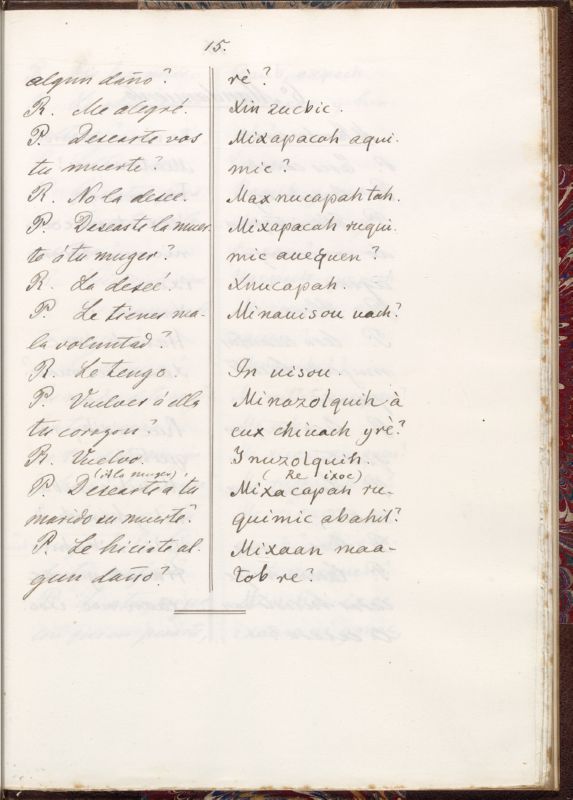 15.
algun daño?
R. Me alegré.
P. Deseaste vos
tu muerte?
R. No la desee.
P. Deseaste la muer
te á tu muger?
R. La deseé.
P. Le tienes ma-
la voluntad?
R. Le tengo.
P. Vuelves á ella
tu corazon?
R. Vuelvo.
(A la muger)
P. Deseaste a tu
marido su muerte?
P. Le hiciste al-
gun daño?
rè?
Xin zucbic.
Mixapacah aqui.
mic?
Max nucapah tah.
Mixapacah ruqui.
mic auequen?
Xnucapah.
Minauisou uach?
In uisou.
Minazolquih à
cux chiuach yrè?
Y nuzolquih.
(Re ixoc)
Mixacapah ru-
quimic abahil?
Mixaan maa-
tob re?